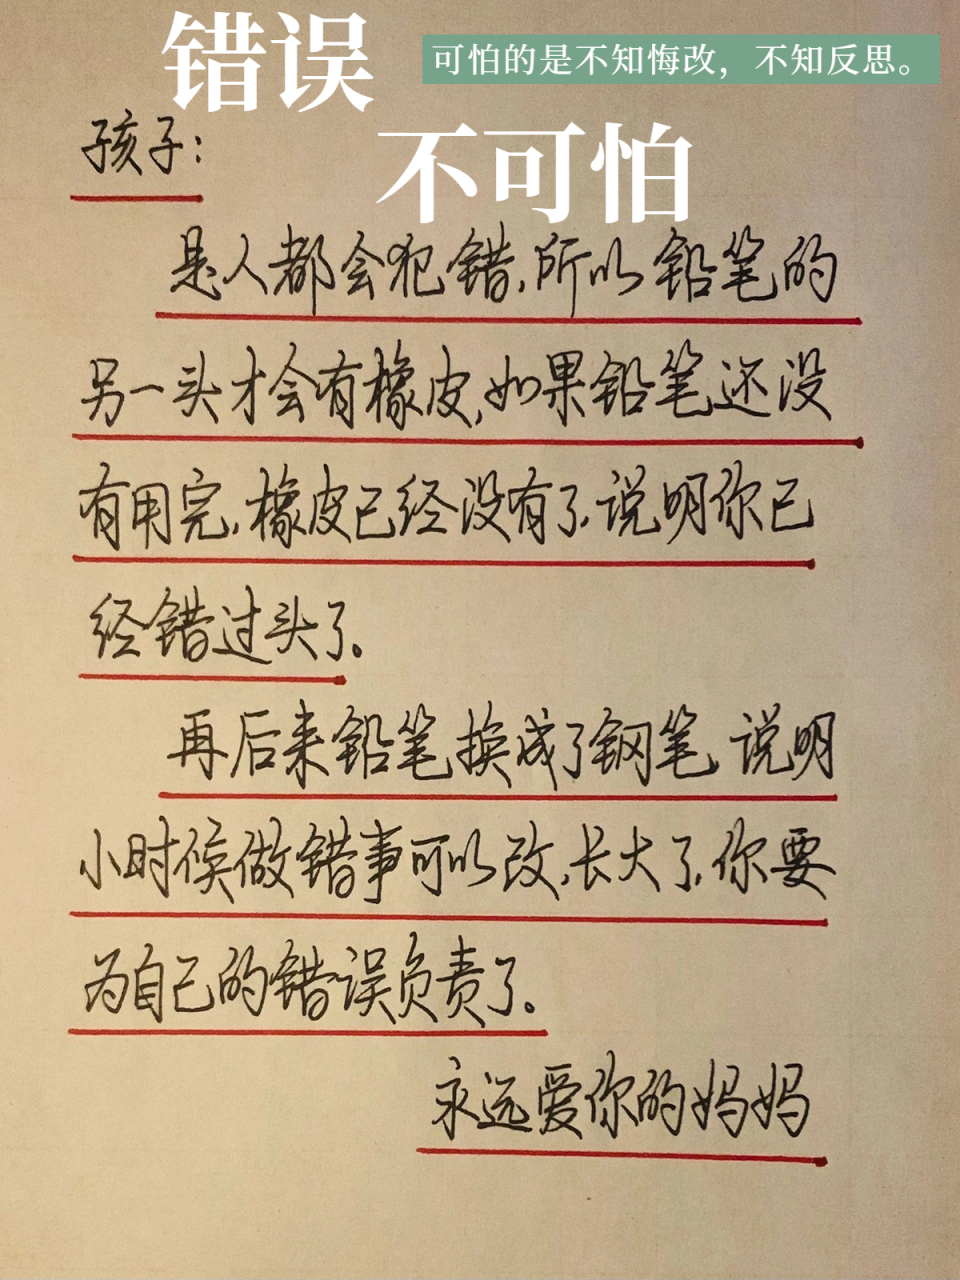 错误
可怕的是不知悔改，不知反思。
不可怕
孩子：
是人都会犯错，所以铅笔的
另一头才会有橡皮，如果铅笔还没
有用完，橡皮已经没有了，说明你已
经错过头了。
再后来铅笔换成了钢笔，说明
小时候做错事可以改，长大了，你要
为自己的错误负责了。
永远爱你的妈妈